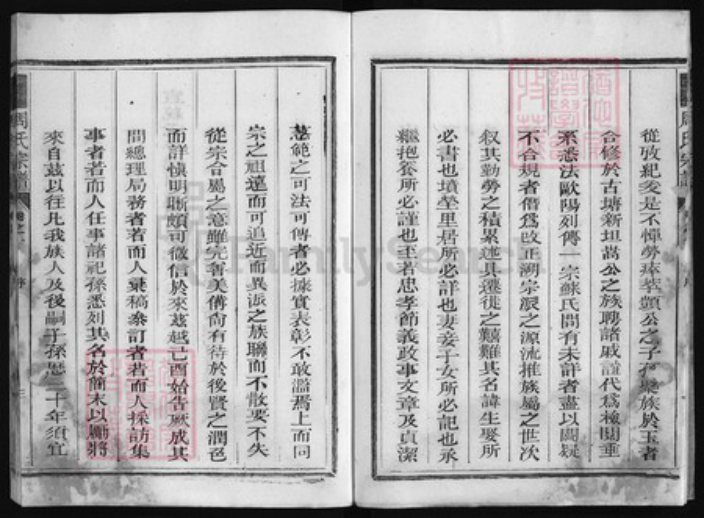 從攷紀炎是不憚勞瘁萃顗公之子有逖族於玉者
合修於古塘新坦嵩公之族聘諸戚謹代為檢閱垂
系悉法歐陽列傳一宗蘇氏間有未詳者盡以闕疑
不合規者僭為改正溯宗派之源流推族屬之世次
叙其勤勞之積累述其遷徙之艱難其名諱生娶所
必書也墳塋里居所必詳也妻妾子女所必記也承
繼抱養所必謹也至若忠孝節義政事文章及貞潔
懿範之可法可傳者必據實表彰不敢濫焉上而同
宗之祖遠而可追近而異派之族聯而不散要不失
從宗合屬之意雖完者美傳尚有待於後賢之潤色
而詳慎明晰頗可徵信於來茲越己酉始告厥成其
間總理局務者若而人秉稿叅訂者若而人採訪集
事者若而人任事諸祀孫悉列其名於簡末以勵將
來自茲以往凡我族人及後嗣子孫思三十年須宜
周氏宗譜
卷之
序
三
周氏宗譜
FamilySearch